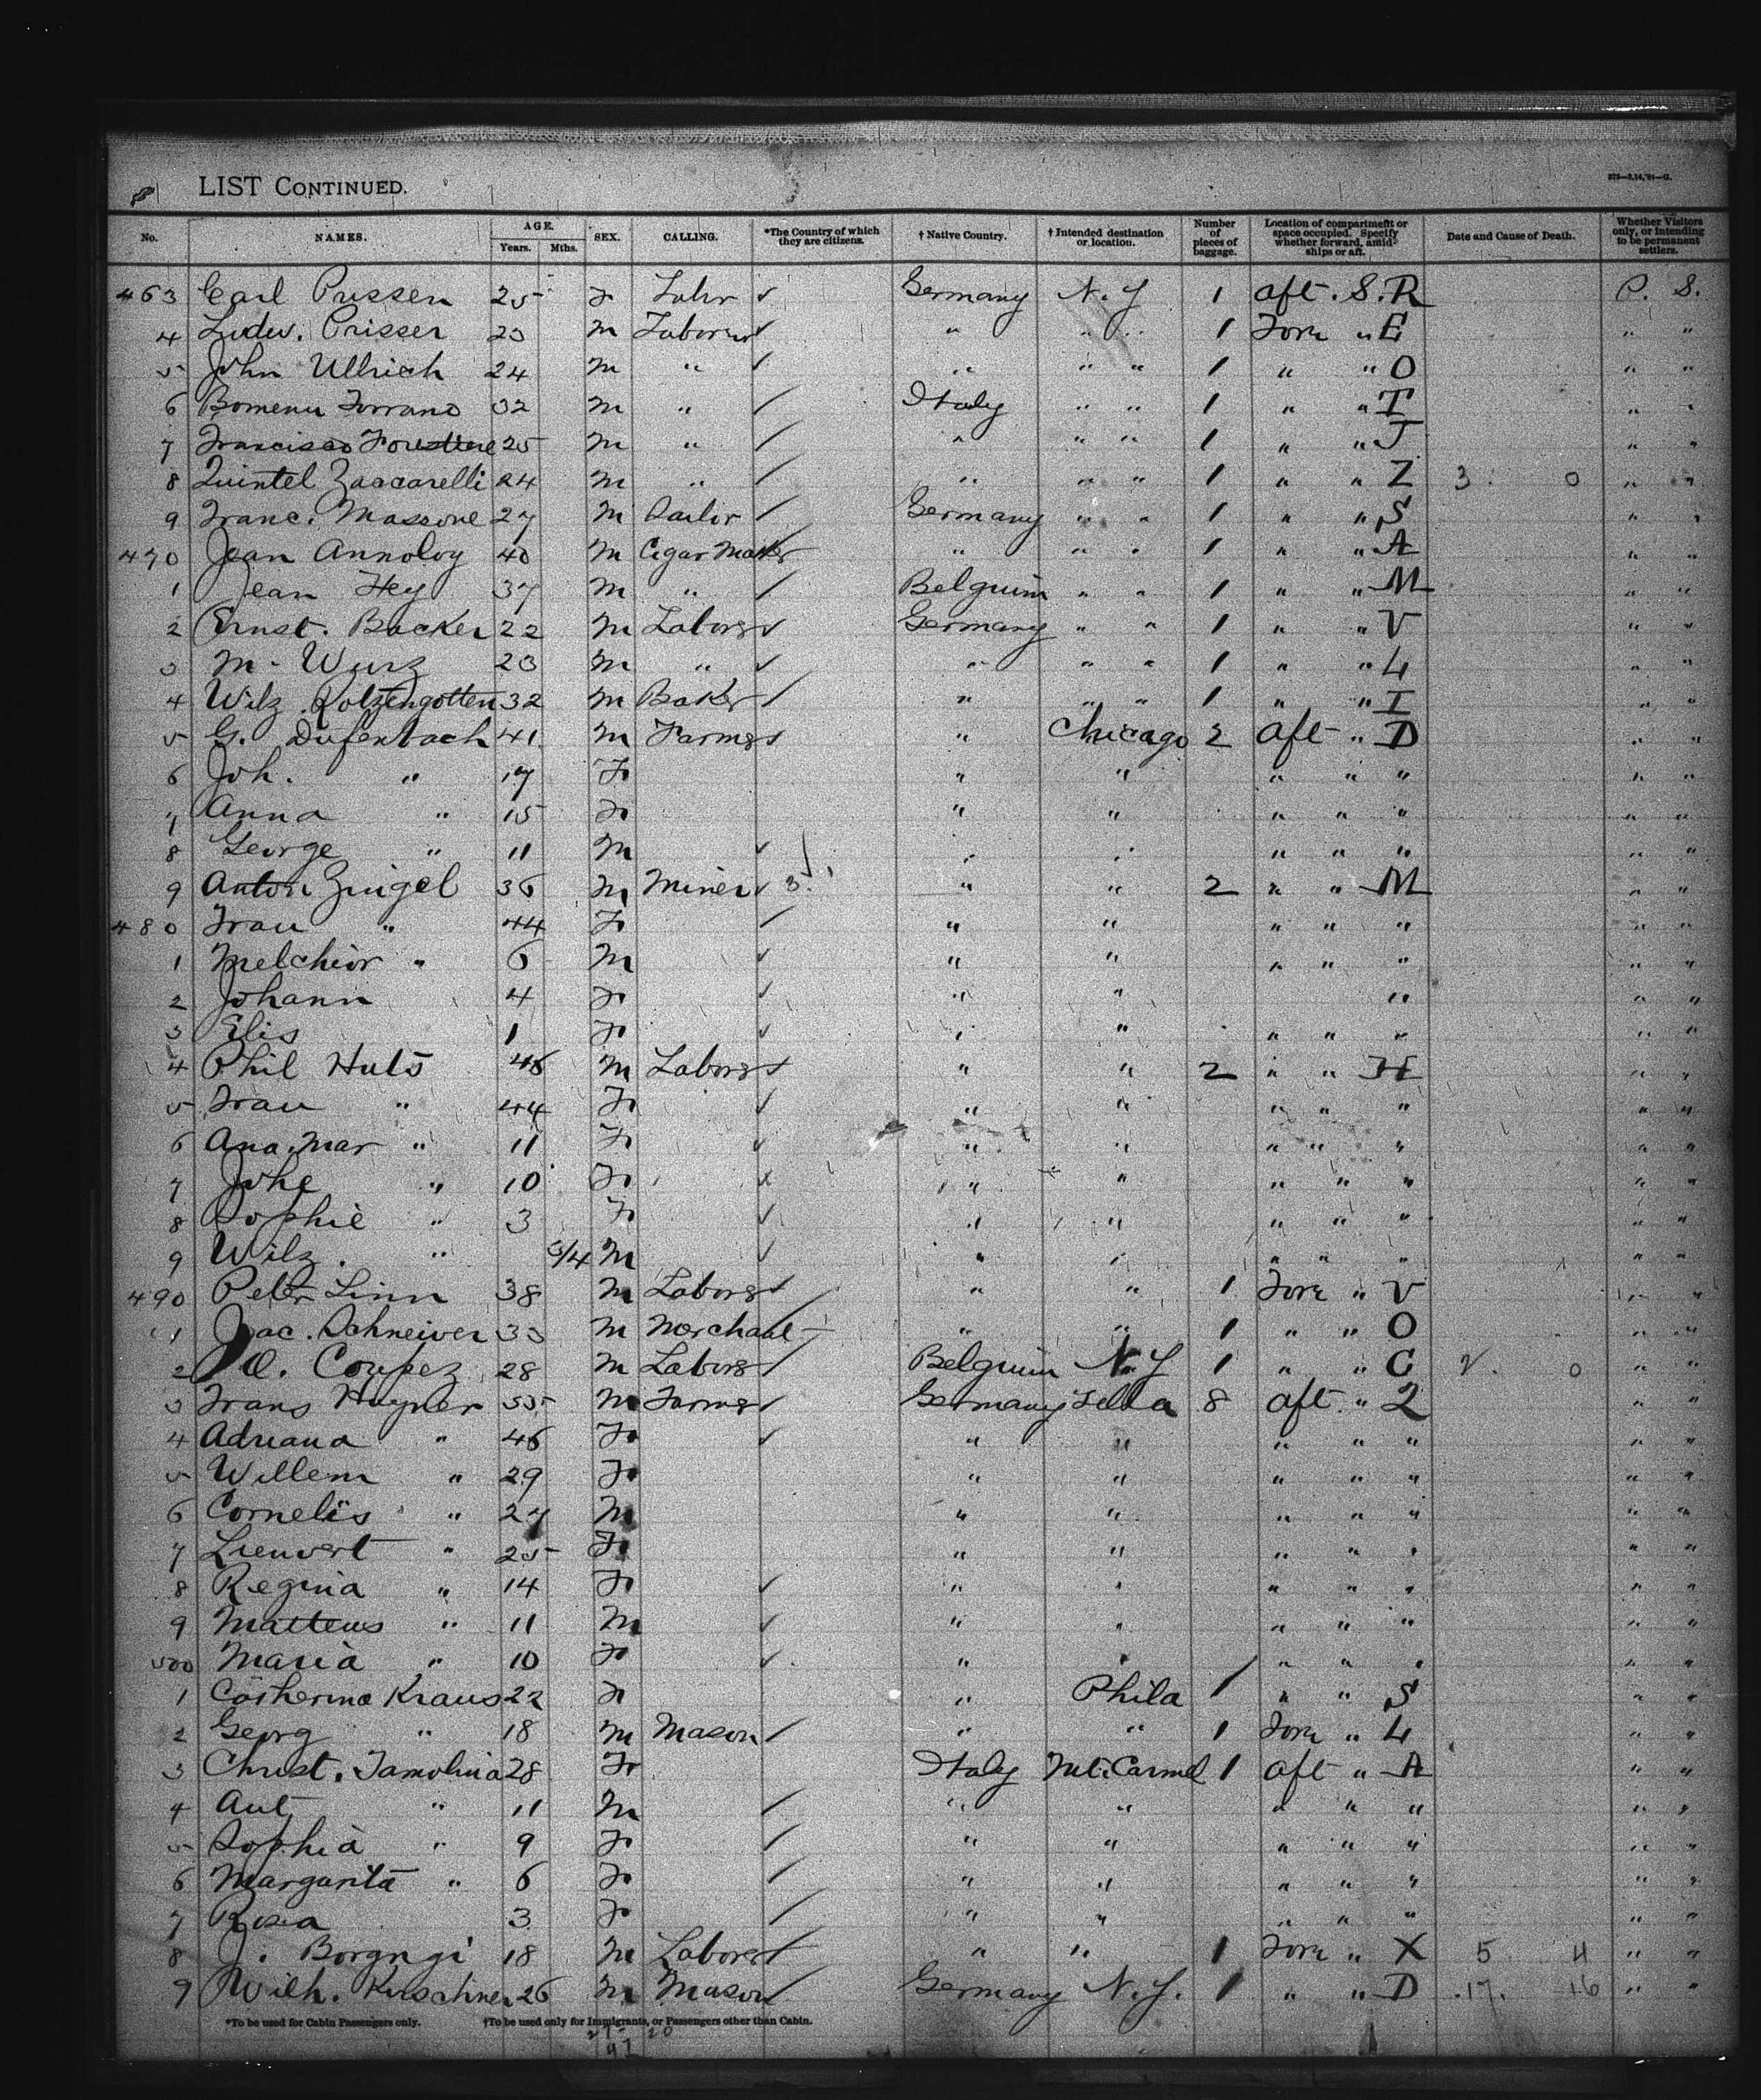 LIST CONTINUED.
No. NAMES. AGE. Years. Mths. SEX. CALLING. *The Country of which they are citizens. † Native Country. † Intended destination or location. Number of pieces of baggage. Location of compartment or space occupied. Specify whether forward, amidships or aft. Date and Cause of Death. Whether Visitors only, or intending to be permanent settlers.
463 Carl Prissen 25 F Germany N.Y 1 aft. S.R P. S.
4 Ludw. Prisser 23 M Laborer " " " 1 Fore " E " "
5 John Ullrich 24 M " " " " 1 " " O " "
6 32 M " Italy " " 1 " " T " "
7 Francisco Forestiere 25 M " " " " 1 " " J " "
8 Quintel Zaccarelli 24 M " " " " 1 " " Z 3. 0 " "
9 Franc. Massone 27 M Sailor Germany " " 1 " " S " "
470 Jean Annoloy 40 M Cigar Maker " " " 1 " " A " "
1 Jean Hey 37 M " Belguim " " 1 " " M " "
2 Ernst. Backer 22 M Laborer Germany " " 1 " " V " "
3 M. Wurz 23 M " " " " 1 " " L " "
4 Wilz. Kolzengotten 32 M Baker " " " 1 " " I " "
5 G. Dufenbach 41 M Farmer " Chicago 2 aft " D " "
6 Joh. " 17 F " " " " " " "
7 Anna " 15 F " " " " " " "
8 George " 11 M " " " " " " "
9 Anton Zuigel 36 M Miner 3. " " 2 " " M " "
480 Frau " 44 F " " " " " " "
1 Melchior " 6 M " " " " " " "
2 Johann 4 F " " " " "
3 Elis 1 F " " " " " " "
4 Phil Huts 46 M Laborer " " 2 " " H " "
5 Frau " 44 F " " " " " " "
6 Ana. Mar " 11 F " " " " " " "
7 Johe " 10 F " " " " " " "
8 Sophie " 3 F " " " " " " "
9 Wilz. " 3/4 M " " " " " " "
490 Peter Linn 38 M Laborer " " 1 Fore " V " "
1 Jac. Schneiver 33 M Merchant " 1 " " O " "
2 Coupez 28 M Laborer Belguim N.Y 1 " " C 0 " "
3 Frans Huyner 55 M Farmer Germany Pella 8 aft. " 2 " "
4 Adriana " 46 F " " " " " " "
5 Willem " 29 F " " " " " " "
6 Cornelis " 27 M " " " " " " "
7 Lienvert " 25 F " " " " " " "
8 Regina " 14 F " " " " " " "
9 Matteus " 11 M " " " " " " "
500 Maria " 10 F " " " " " " "
1 Catherina Kraus 22 F " Phila 1 " " S " "
2 Georg " 18 M Mason " " 1 Fore " L " "
3 Christ. Tamolina 28 F Italy Mt. Carmel 1 aft " A " "
4 Ant " 11 M " " " " " " "
5 Sophia " 9 F " " " " " " "
6 Margarita " 6 F " " " " " " "
7 Rosa 3 F " " " " " " "
8 J. Borgngi 18 M Laborer " " 1 Fore " X 5 4 " "
9 Wilh. Kuschner 26 M Mason Germany N.Y. 1 " " D 17. 16 " "
*To be used for Cabin Passengers only. †To be used only for Immigrants, or Passengers other than Cabin.